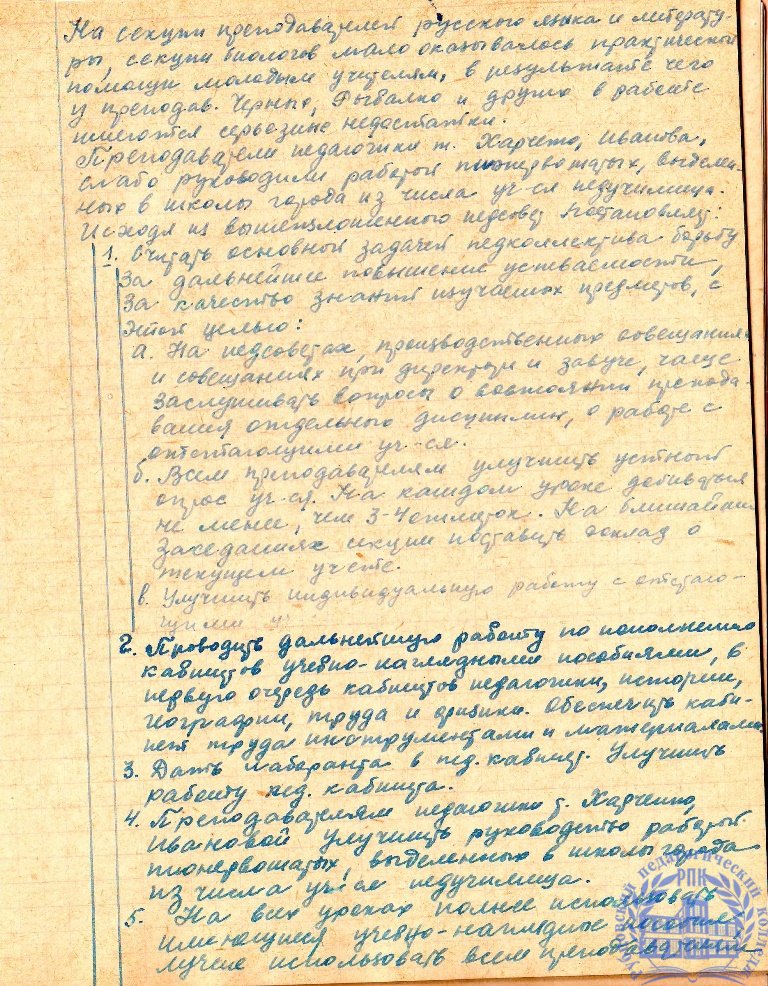 На секции преподавателей русского языка и литерату-
ры, секции биологов мало оказывалось практической
помощи молодым учителям, в результате чего
у преподав. Черных, Рыбалко и других в работе
имеются серьезные недостатки.
Преподаватели педагогики т. Харченко, Иванова,
слабо руководили работой пионервожатых, выделен-
ных в школы города из числа уч-ся педучилища.
Исходя из вышеизложенного педсовет постановляет:
1. Считать основной задачей педколлектива борьбу
за дальнейшее повышение успеваемости,
за качество знаний изучаемых предметов, с
этой целью:
а. На педсоветах, производственных совещаниях
и совещаниях при директоре и завуче, чаще
заслушивать вопросы о состоянии препода-
вания отдельного дисциплин, о работе с
отстающими уч-ся.
б. Всем преподавателям улучшить устный
опрос уч-ся. На каждом уроке добиваться
не менее, чем 3-4 отметок. На ближайших
заседаниях секции поставить доклад о
текущем учете.
в. Улучшить индивидуальную работу с отстаю-
щими у
2. Проводить дальнейшую работу по пополнению
кабинетов учебно-наглядными пособиями, в
первую очередь кабинетов педагогики, истории,
географии, труда и физики. Обеспечить каби-
нет труда инструментами и материалами.
3. Дать лаборанта в пед. кабинет. Улучшить
работу пед. кабинета.
4. Преподавателям педагогики т. Харченко,
Ивановой улучшить руководство работой
пионервожатых, выделенных в школы города
из числа уч-ся педучилища.
5. На всех уроках полнее использовать
имеющиеся учебно-наглядные пособия,
лучше использовать всем преподавателям
педагогический колледж
РПК